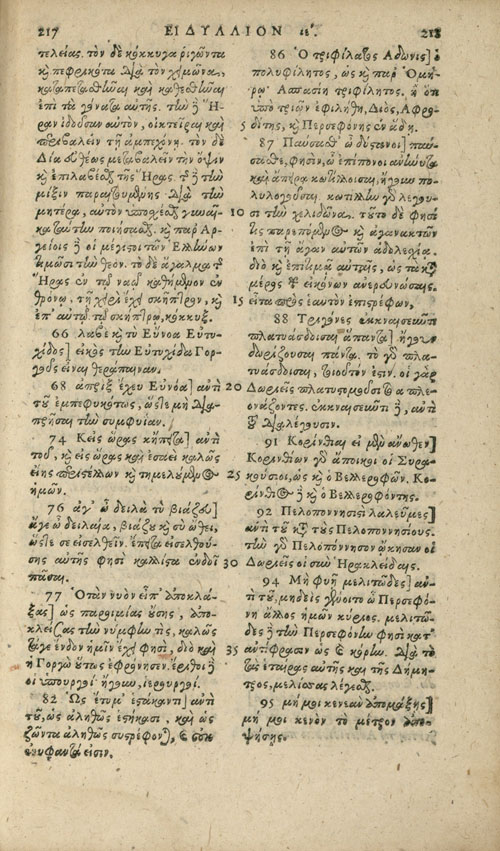 217 ΕΙΔΥΛΛΙΟΝ ιέ. 218
τελείας. τὸν δὲ κόκκυγα ῥιγῶντα
καὶ πεφρικότα διὰ τὸν χειμῶνα,
καταπτῆναι καὶ καθεσθῆναι
ἐπὶ τὰ γόνατα αὐτῆς. τὴν δὲ Ἥ-
ραν ἰδοῦσαν αὐτὸν, οἰκτεῖραι καὶ
περιβαλεῖν τῇ ἀμπεχόνῃ. τὸν δὲ
Δία εὐθέως μεταβαλεῖν τὴν ὄψιν
καὶ ἐπιλαβέσθαι τῆς Ἥρας. τῆς δὲ τὴν
μίξιν παραιτουμένης διὰ τὴν
μητέρα, αὐτὸν ὑποσχέσθαι γυναῖ-
κα αὐτὴν ποιήσασθαι. καὶ παρ' Ἀρ-
γείοις δὲ οἱ μέγιστοι τῶν Ἑλλήνων
τιμῶσι τὴν θεόν. τὸ δὲ ἄγαλμα τῆς
Ἥρας ἐν τῷ ναῷ καθήμενον ἐν
θρόνῳ, τῇ χειρὶ ἔχει σκῆπτρον, καὶ
ἐπ' αὐτῷ τῷ σκήπτρῳ, κόκκυξ.
66 λαβὲ καὶ τὺ Εὐνόα Εὐτυ-
χίδος] εἰκὸς τὴν Εὐτυχίδα Γορ-
γοῦς εἶναι θεράπαιναν.
68 ἀπρὶξ ἔχευ Εὐνόα] ἀντὶ
τοῦ ἐμπεφυκότως, ὥστε μὴ δια-
σπῆσαι τὴν συμφυίαν.
74 Κεἰς ὥρας κἤπειτα] ἀντὶ
τοῦ, καὶ εἰς ὥρας καὶ ἔσεαι καλῶς
εἴης περιστέλλων καὶ τημελούμενος
ἡμῶν.
76 ἄγ' ὦ δειλὰ τὺ βιάζευ]
ἄγε ὦ δειλαία, βιάζου καὶ σὺ ὤθει,
ὥστε σε εἰσελθεῖν. ἔπειτα εἰσελθού-
σης αὐτῆς φησὶ κάλλιστα ἐνδοῖ
πᾶσαι.
77 Ὁ τὰν νυὸν εἶπ' ἀποκλά-
ξας] ὡς παροιμίας οὔσης, ἀπο-
κλείξας τὴν νύμφην τὶς, καλῶς
ἔχει ἔνδον ἡμῖν ἔχει φησὶ, διὸ καὶ
ἡ Γοργὼ οὕτως ἐφρόνησεν. ἔριθοι δὲ
οἱ ὑπουργοὶ ἤγουν, ἱερουργοί.
82 Ὡς ἔτυμ' ἑστάκαντι] ἀντὶ
τοῦ, ὡς ἀληθῶς ἑστήκασι, καὶ ὡς
ζῶντα ἀληθῶς συστρέφονται, καὶ οὐκ
ἐνυφαντά εἰσιν.
86 Ὁ τριφίλατος Ἄδωνις] ὁ
πολυφίλητος, ὡς καὶ παρ' Ὁμή-
ρῳ Ἀσπασίη τριφίλητος. ἢ ὅτι
ὑπὸ τριῶν ἐφιλήθη, Διὸς, Ἀφρο-
5 δίτης, καὶ Περσεφόνης ἐν ᾅδῃ.
87 Παύσασθ' ὦ δύστανοι] παύ-
σασθε, φησὶν, ὦ ἐπίπονοι ἀνήνυτα
καὶ ἄπειρα κωτίλλοισαι, ἤγουν πο-
λυλογοῦσαι. κωτίλλειν γὰρ λέγου-
10 σι τὴν χελιδόνα. τοῦτο δὲ φησί
τις παρεπόμενος καὶ ἀγανακτῶν
ἐπὶ τῇ ἄγαν αὐτῶν ἀδολεσχίᾳ.
διὸ καὶ ἐπιτιμᾷ αὐταῖς, ὡς ταχὺ
μέρος τῶν εἰκόνων ἀνερευνώσαις.
15 εἶτα πρὸς ἑαυτὸν ἐπιστρέφων,
88 Τρυγόνες ἐκκναισεῦντι
πλατυάσδοισαι ἅπαντα] ἤγουν
δωρίζουσαι πάντα. τὸ γὰρ πλα-
τυάσδοισαι, τοιοῦτόν ἐστιν. οἱ γὰρ
20 Δωριεῖς πλατυστομοῦσι τὸ α πλεο-
νάζοντες. ἐκκναισεῦντι δὲ, ἀντὶ
τοῦ διαλέγουσιν.
91 Κορίνθιαι εἰμὲν ἄνωθεν]
Κορινθίων γὰρ ἄποικοι οἱ Συρα-
25 κούσιοι, ὡς καὶ ὁ Βελλεροφῶν. Κο-
ρίνθιος δὲ καὶ ὁ Βελλεροφόντης.
92 Πελοποννησιστὶ λαλεῦμες]
ἀντὶ τοῦ κατὰ τοὺς Πελοποννησίους.
τὴν γὰρ Πελοπόννησον ᾤκησαν οἱ
30 Δωριεῖς οἱ σὺν Ἡρακλείδαις.
94 Μὴ φυῇ μελιτῶδες] ἀν-
τὶ τοῦ, μηδεὶς γένοιτο ὦ Περσεφό-
νη ἄλλος ἡμῶν κύριος. μελιτῶ-
δες δὲ τὴν Περσεφόνην φησὶ κατ'
35 ἀντίφρασιν ὡς καὶ κόρην. διὰ τὸ
τὰς ἑταίρας αὐτῆς καὶ τῆς Δήμη-
τρος, μελίσσας λέγεσθαι.
95 μή μοι κενεὰν ἀπομάξῃς]
μή μοι κενὸν τὸ μέτρον ἀπο-
ψήσῃς.